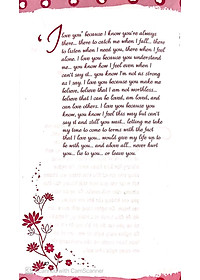 'I love you' because I know you've always
there... there to catch me when I fall... there
to listen when I need you, there when I feel
alone. I love you because you understand
me... you know how I feel even when I
can't say it... you know I'm not as strong
as I say. I love you because you make me
believe, believe that I am not worthless...
believe that I can be loved, am loved, and
can love others. I love you because you
know, you know I feel this way but can't
say it and still you wait... letting me take
my time to come to terms with the fact
that I love you... would give my life up to
be with you... and above all... never hurt
you... lie to you... or leave you.
with CamScanner